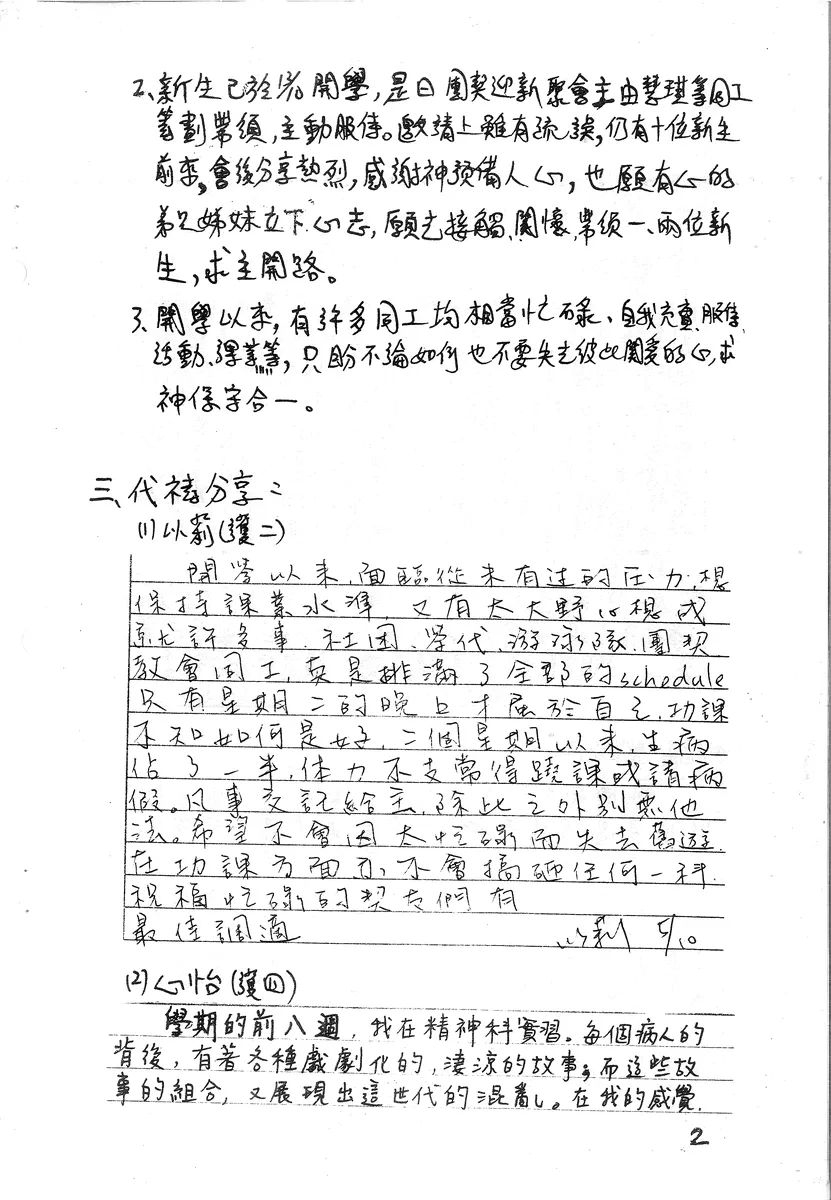 2、新生已於 開學,是日團契迎新聚會主由慧琪等同工
籌劃帶領,主動服侍。邀請上雖有疏誤,仍有十位新生
前來,會後分享熱烈,感謝神預備人心,也願有心的
弟兄姊妹立下心志,願去接觸、關懷、帶領一、兩位新
生,求主開路。
3、開學以來,有許多同工均相當忙碌、自我充實、服侍、
活動、課業等,只盼不論如何也不要失去彼此關愛的心,求
神保守合一。
三、代禱分享:
(1)以莉(護二)
開學以來,面臨從未有过的压力,想
保持課業水準 又有太大野心想成
就許多事,社団、學代、游泳隊、團契
教會同工,真是排滿了全部的schedule
只有星期二的晚上才屬於自己,功課
不知如何是好,二個星期以來,生病
佔了一半,体力不支常得蹺課或請病
假。凡事交託給主,除此之外別無他
法。希望不會因太忙碌而失去
在功課方面亦不會搞砸任何一科.
祝福忙碌的契友們有
最佳調適 以莉 5/10
(2)心怡(護四)
學期的前八週,我在精神科實習。每個病人的
背後,有著各種戲劇化的,淒涼的故事,而這些故
事的組合,又展現出這世代的混亂。在我的感覺,
2